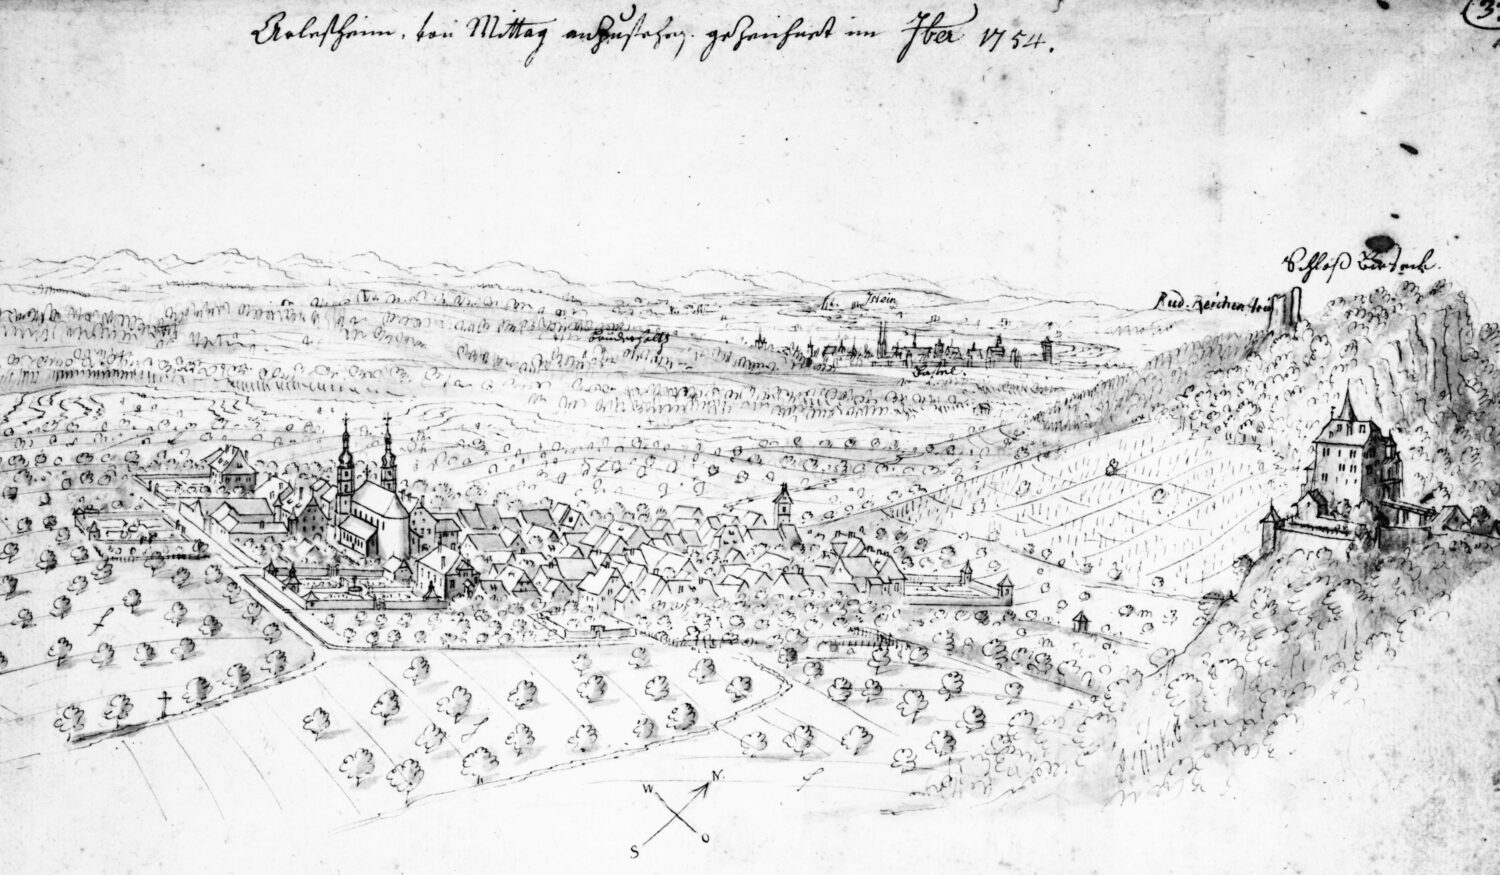 Arlesheim. von Mittag anzusehen. gezeichnet im 7ber 1754.
Schloß Birseck.
Istein
Rud. Reichenstein
Bruderholtz
Basel.
N.
W
O
S